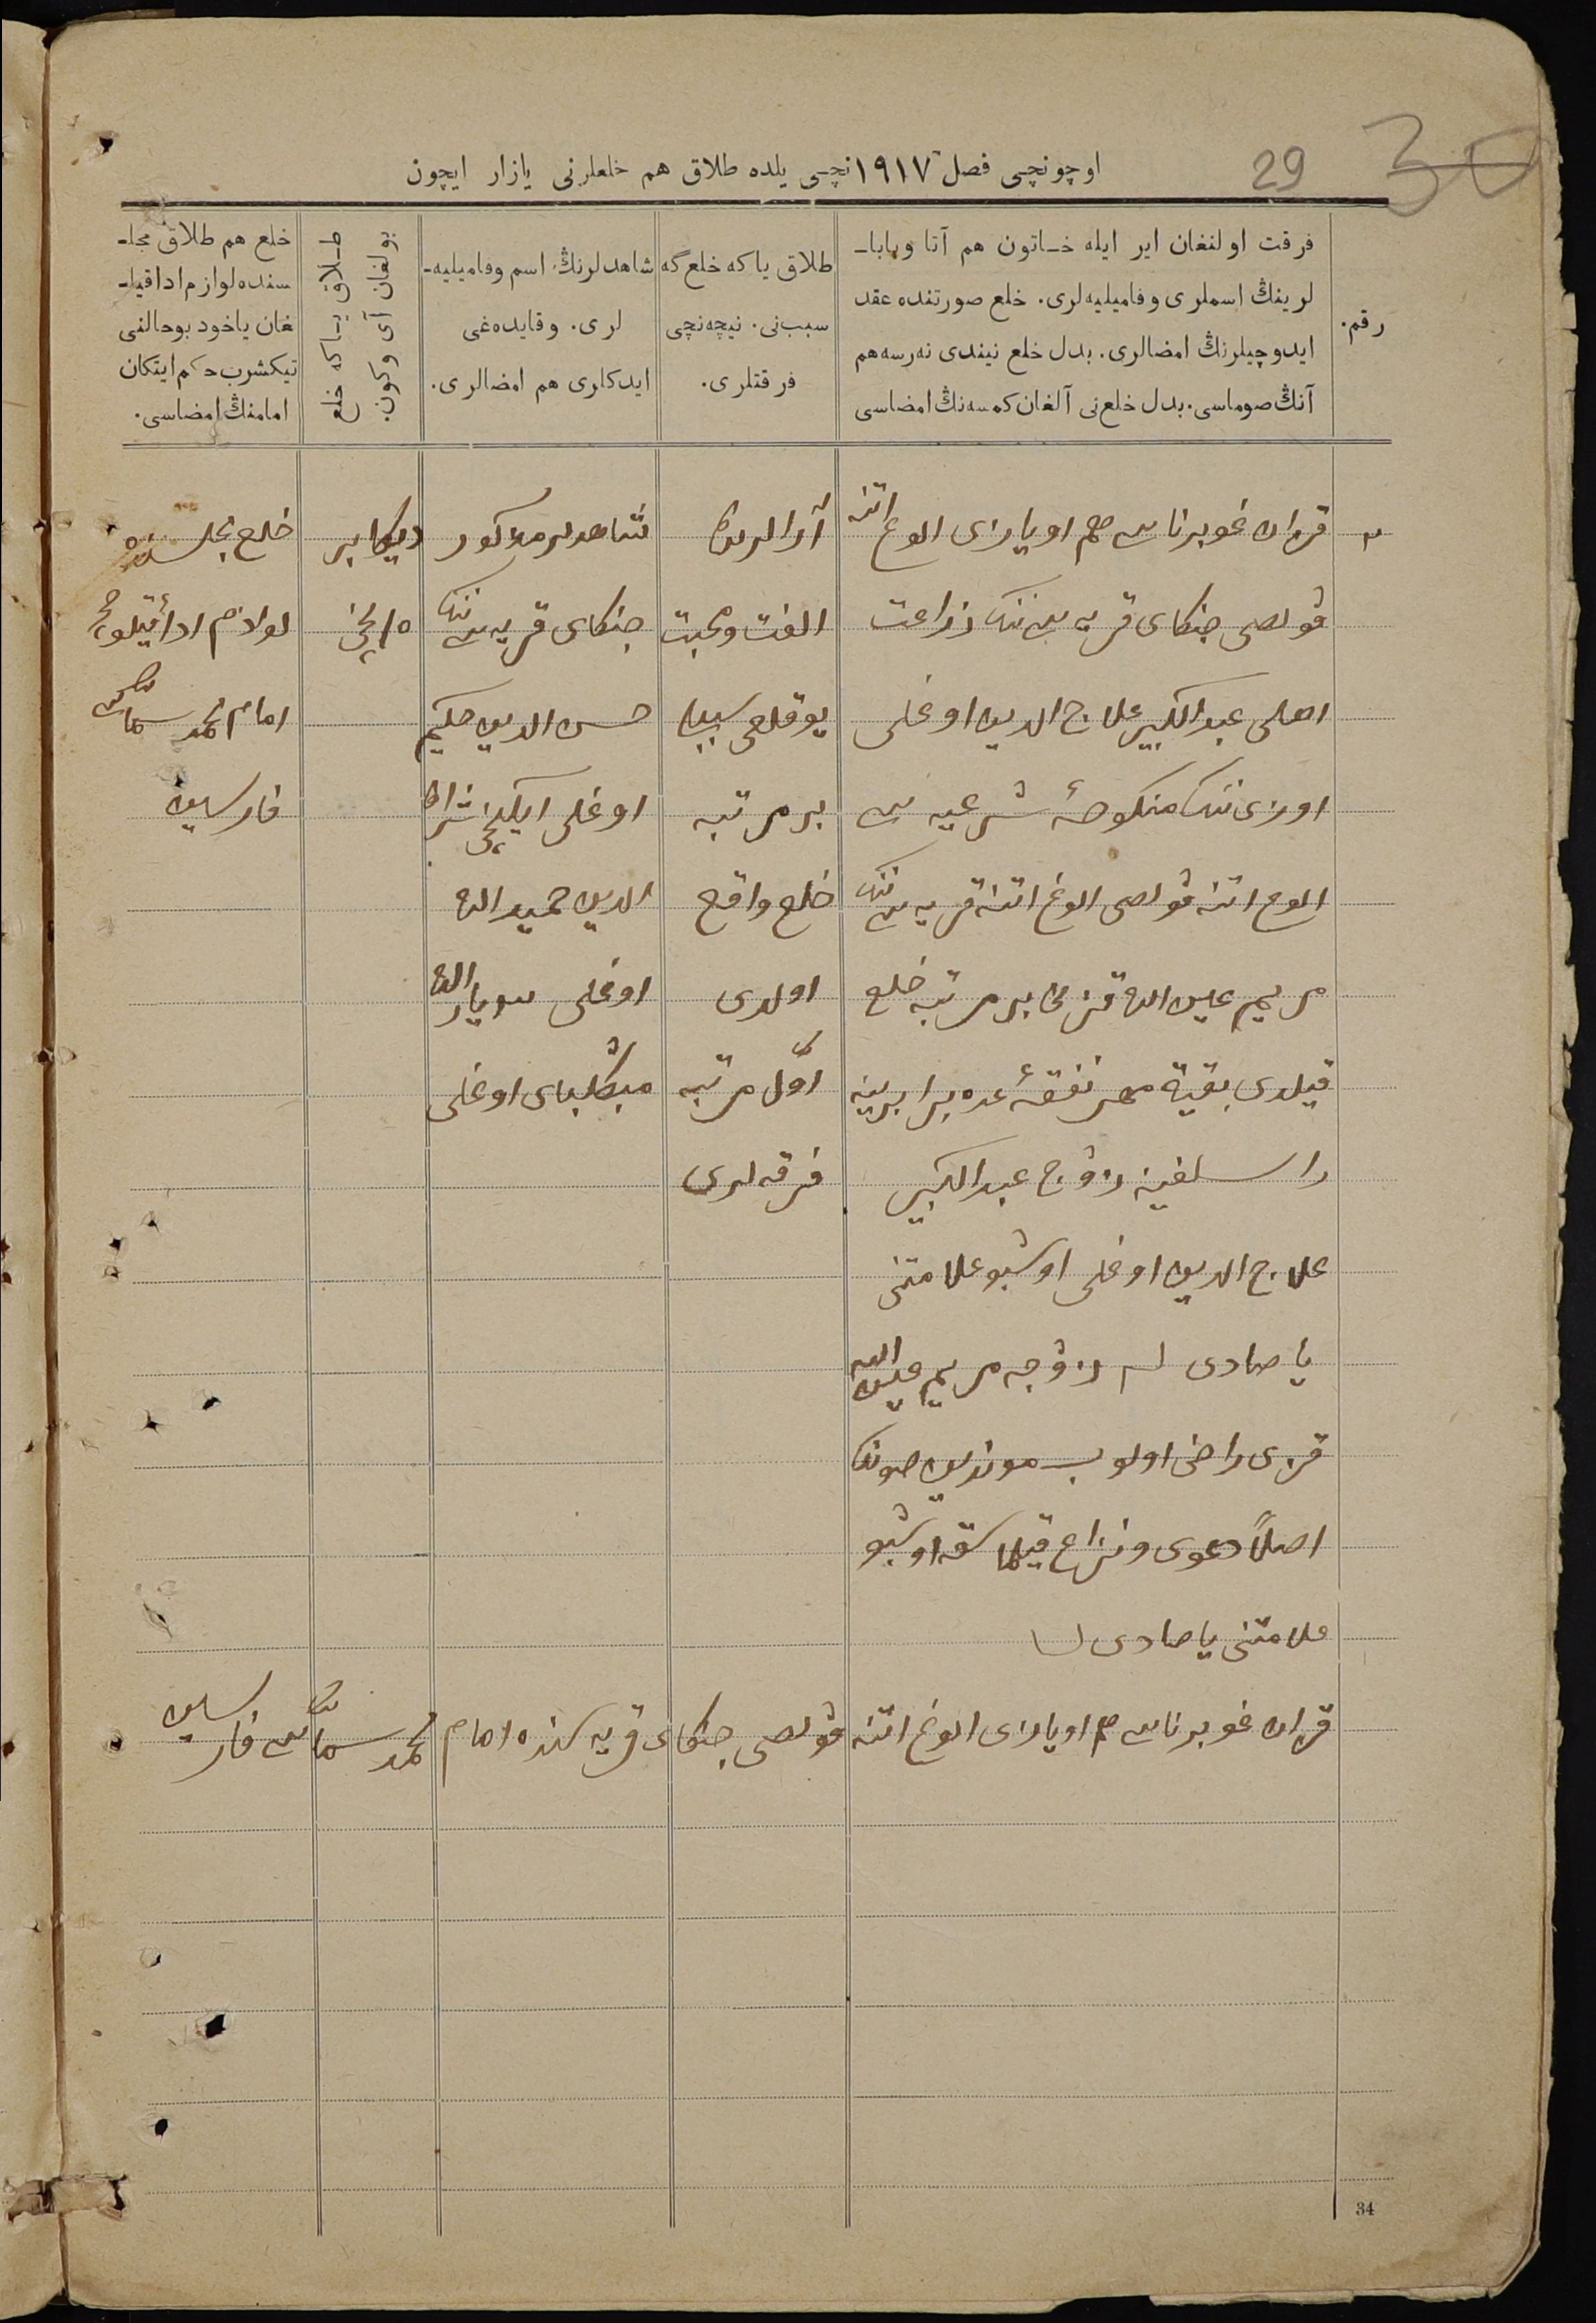 29
30
اوچونچی فصل ۱۹۱۷ نچی یلده طلاق هم خلعلرنی یازار ایچون
رقم.
فرقت اولنغان ایر ایله خاتون هم آتا وبابا-
لرینڭ اسملری وفامیلیه‌لری. خلع صورتنده عقد
ایدوچیلرنڭ امضالری. بدل خلع نیندی نه‌رسه هم
آنڭ صوماسی. بدل خلعنی آلغان کمسه‌نڭ امضاسی
طلاق یاکه خلع گه
سبب‌نی. نیچه‌نچی
فرقتلری.
شاهدلرنڭ اسم وفامیلیه-
لری. وقایده‌غی
ایدکلری هم امضالری.
طلاق یاکه خلع
بولغان آی وکون.
خلع هم طلاق مجلـ
سنده لوازم ادا قیلـ
غان یاخود بوحالنی
تیکشرب حکم ایتکان
امامنڭ امضاسی.
قزان غوبرناسی هم اویازی الوغ اتنه
قولصی جنکای قریه سی ننك زراعت
اهلی عبدالکبیر علاج الدین اوغلی
اوزی ننك منکوحهٔ شرعیه سی
الوغ اتنه قولصی الوغ اتنه قریه سی ننك
مریم عین الله قزنی بر مرتبه خلع
قیلدی بقیهٔ مهر نفقهٔ عده برابرینه
زوج عبدالکبیر
علاج الدین اوغلی اوشبو علامتنی
یاصادی زوجه مریم عین الله
قزی راضی اولوب موندین صونك
اصلاً دعوی ونزاع قیلماسقه اوشبو
علامتنی یاصادی
آرالرنده
الفت ومحبت
یوقلغی سببلی
بر مرتبه
خلع واقع
اولدی
اوّل مرتبه
فرقه لری
شاهدلر مذکور
جنکای قریه سی ننك
حسن الدین حکیم
اوغلی ایکنچی
الدین حمید الله
اوغلی
اوغلی
دیکابر
۱۵نچی
خلع مجلسنده
لوازم ادا قیلوچی
امام محمد
فارسین
قزان غوبرناسی هم اویازی الوغ اتنه قولصی جنکای قریه سنده امام محمد